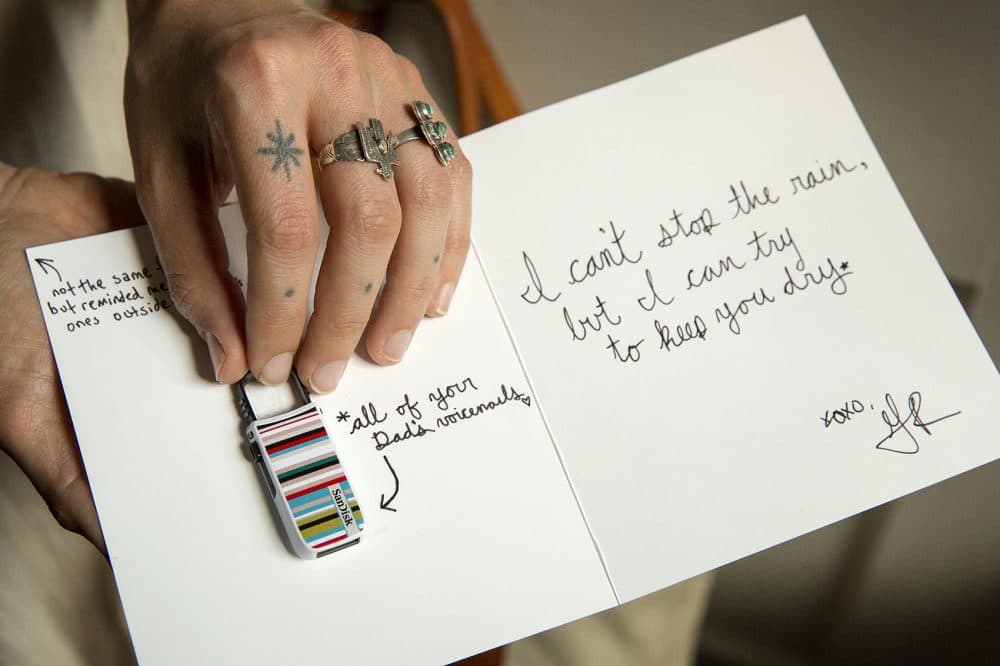 not the same
but reminded me
ones outside
*all of your
Dad's voicemails♡
SanDisk
I can't stop the rain,
but I can try
to keep you dry*
xoxo,